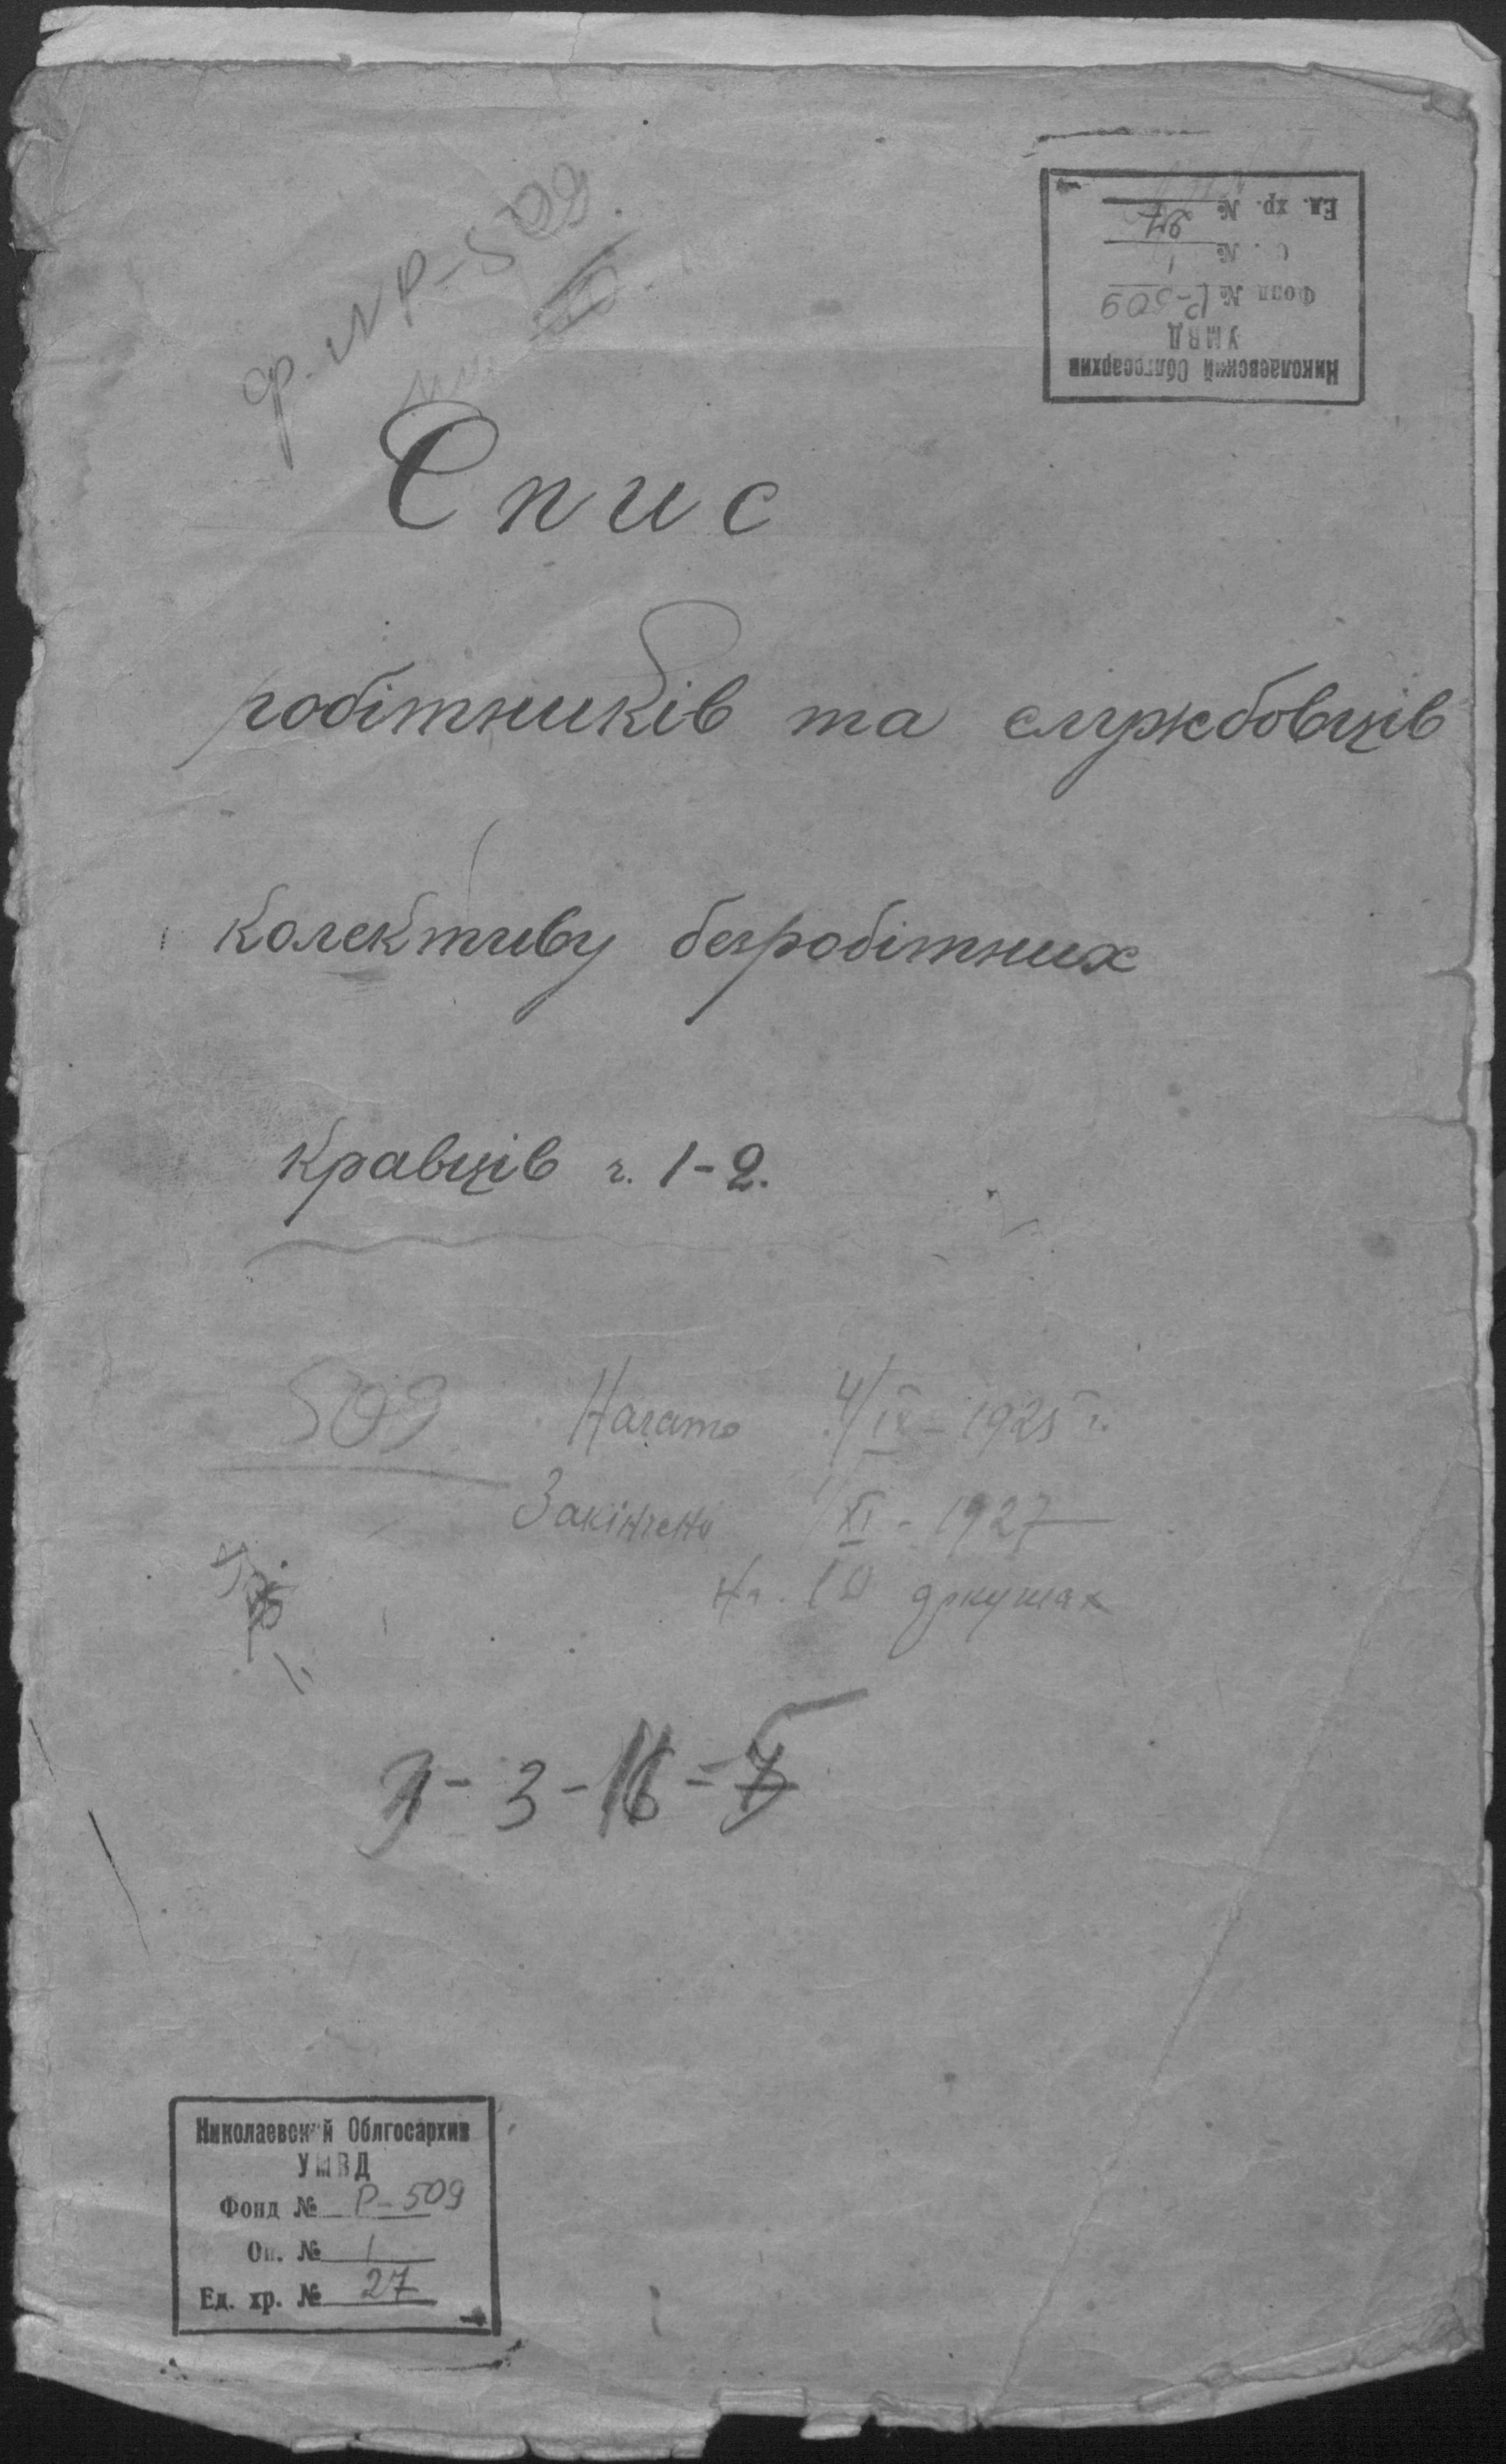 ф. № Р-509.
Николаевский Облгосархив
УМВД
Фонд № Р-509
О. № 1
Ед. хр. № 27
Спис
робітників та службовців
колективу безробітних
кравців ч. 1-2.
509 Начато 4/IX - 1925 г.
Закінчено XI - 1927
На. аркушах
3 -
Николаевский Облгосархив
УМВД
Фонд № Р-509
Оп. № 1
Ед. хр. № 27